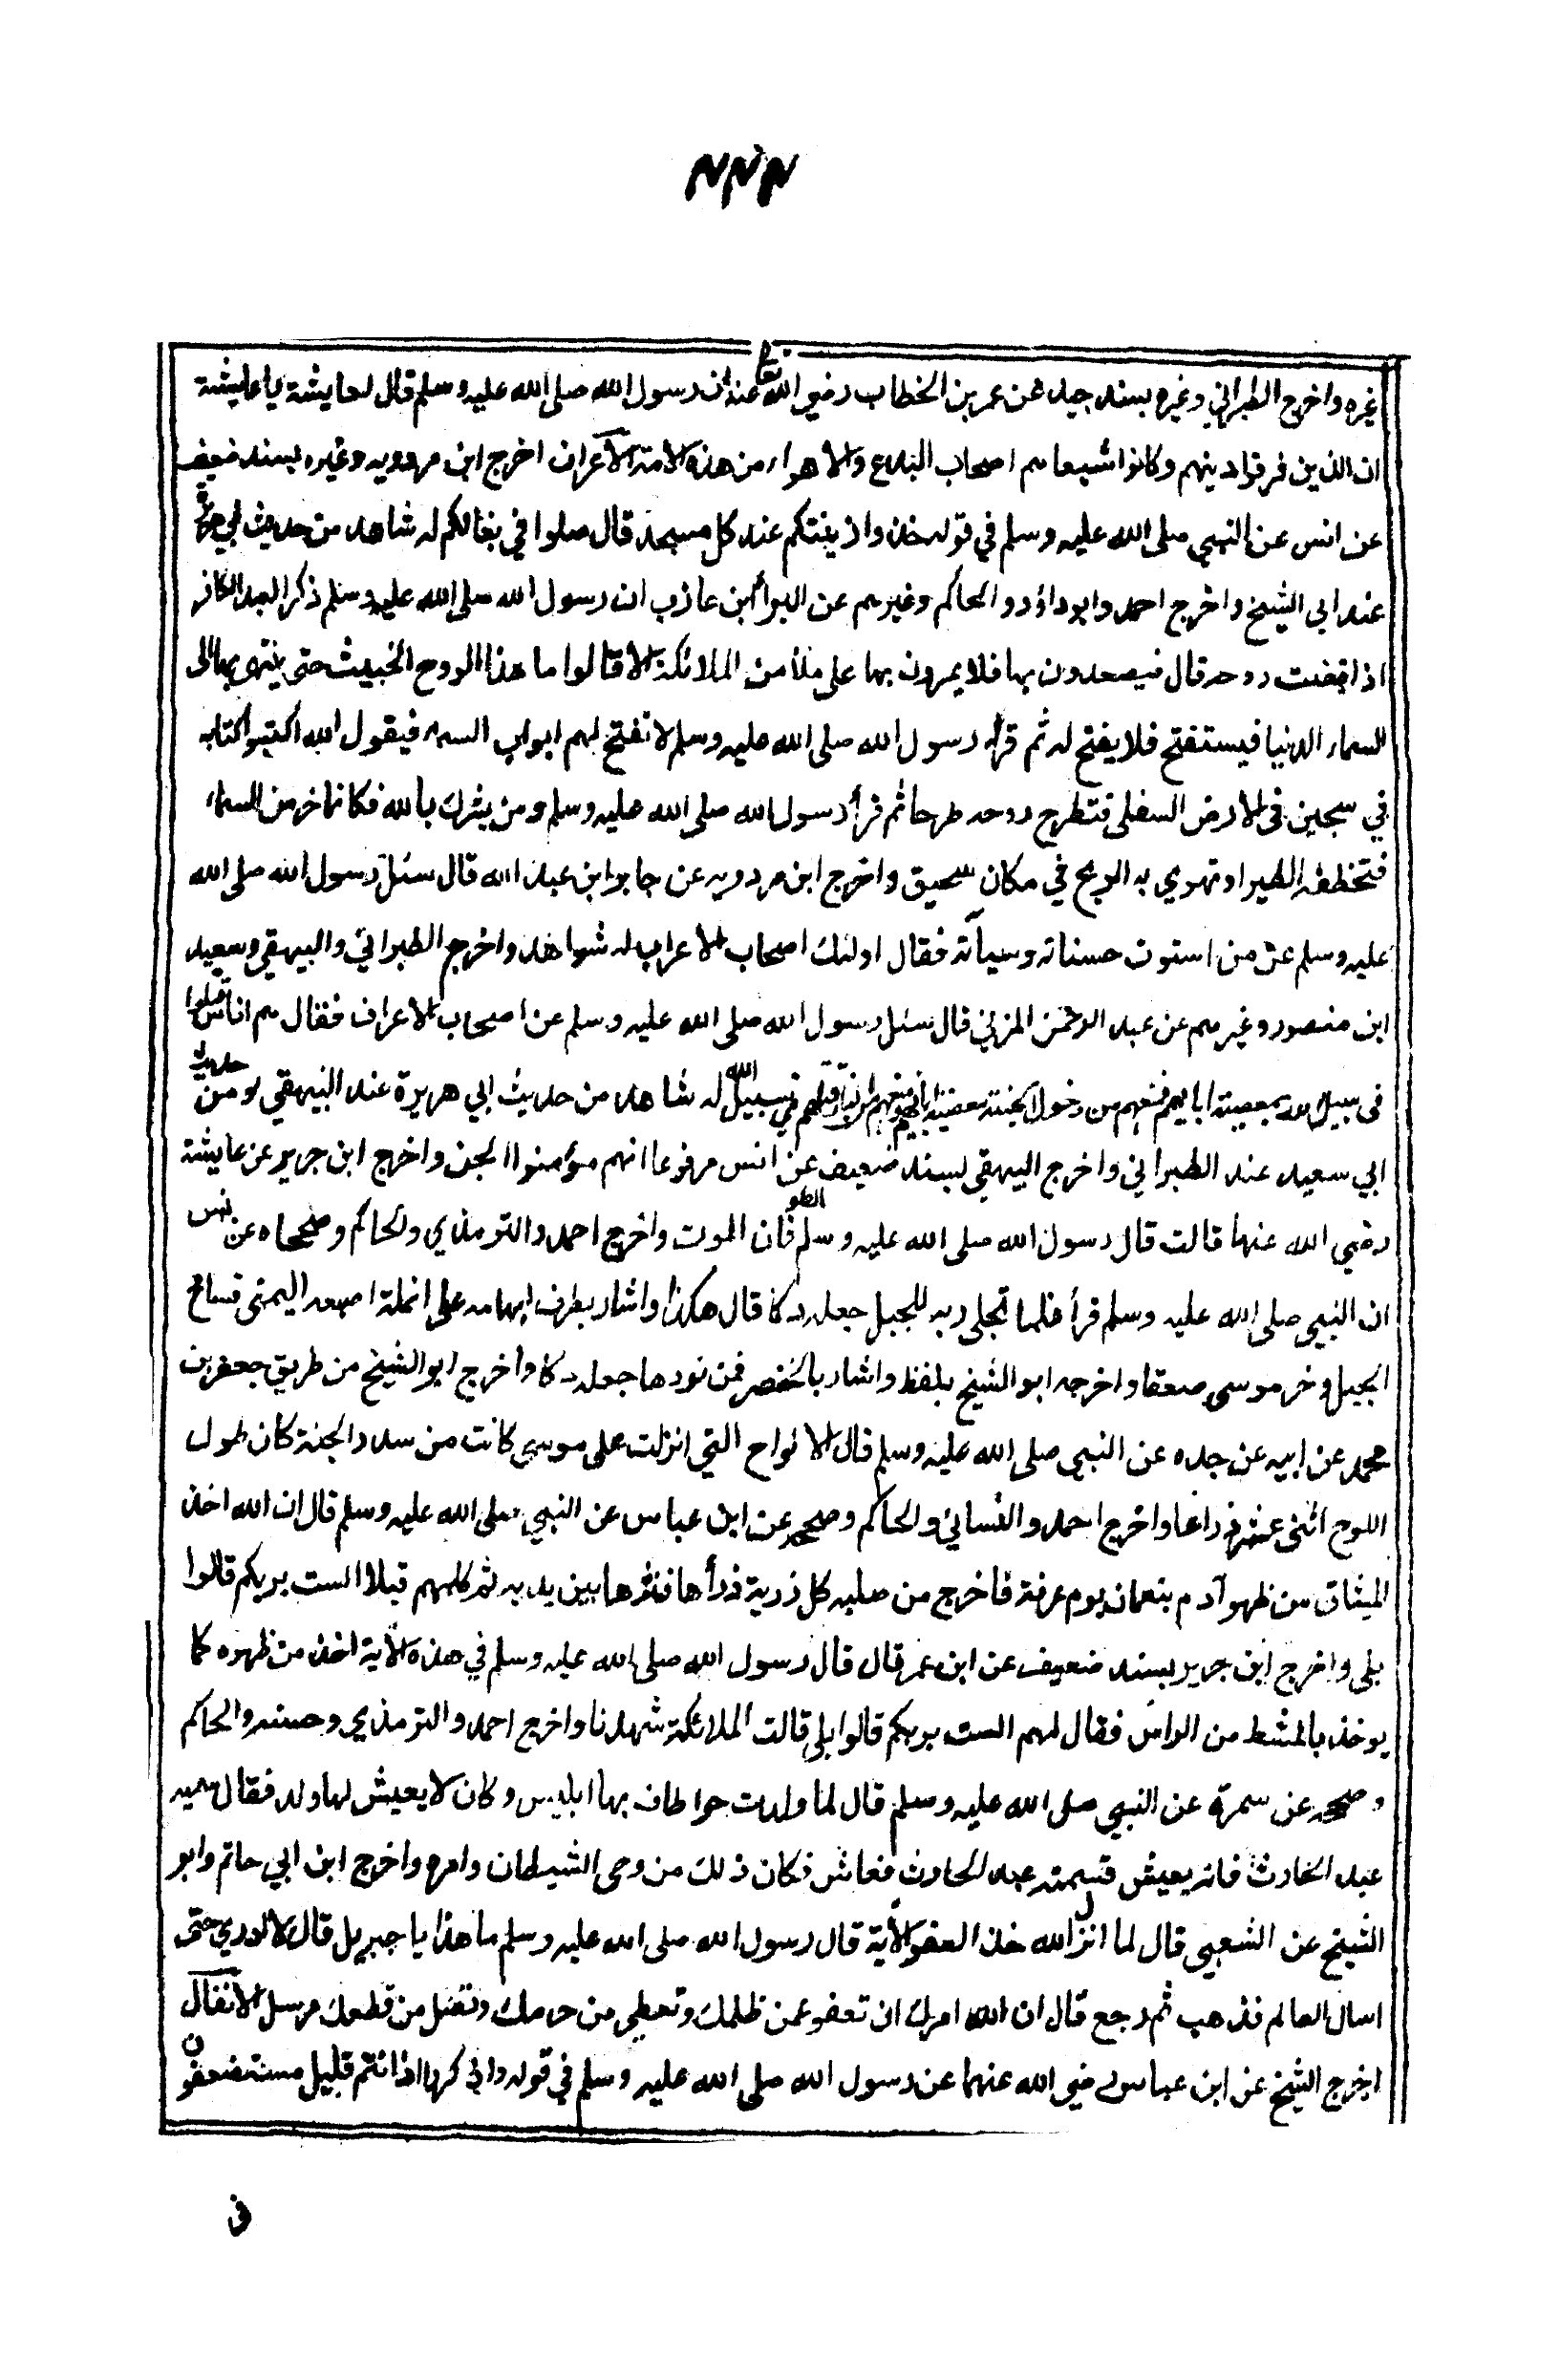 ٣٣٣
غيره واخرج الطبراني وغيره بسند جيد عن عمر بن الخطاب رضي الله تعا عنه ان رسول الله صلى الله عليه وسلم قال لعايشة يا عايشة
ان الذين فرقوا دينهم وكانوا شيعا هم اصحاب البدع والاهواء من هذه الامة الاعراف اخرج ابن مردويه وغيره بسند ضعيف
عن انس عن النبي صلى الله عليه وسلم في قوله خذوا زينتكم عند كل مسجد قال صلوا في نعالكم له شاهد من حديث ابي هريرة
عند ابي الشيخ واخرج احمد وابوداؤد والحاكم وغيرهم عن البرأ ابن عازب ان رسول الله صلى الله عليه وسلم ذكر العبد الكافر
اذا قبضت روحه قال فيصعدون بها فلا يمرون بها على ملأ من الملائكة الا قالوا ما هذا الروح الخبيث حتى ينتهى بها الى
السماء الدنيا فيستفتح فلا يفتح له ثم قرأ رسول الله صلى الله عليه وسلم لا تفتح لهم ابواب السماء فيقول الله اكتبوا كتابه
في سجين في الارض السفلى فتطرح روحه طرحا ثم قرأ رسول الله صلى الله عليه وسلم ومن يشرك بالله فكانما خر من السماء
فتخطفه الطير او تهوي به الريح في مكان سحيق واخرج ابن مردويه عن جابر ابن عبد الله قال سئل رسول الله صلى الله
عليه وسلم عن من استوت حسناته وسيآته فقال اولئك اصحاب الاعراب له شواهد واخرج الطبراني والبيهقي وسعيد
ابن منصور وغيرهم عن عبد الرحمن المزني قال سئل رسول الله صلى الله عليه وسلم عن اصحاب الاعراف فقال هم اناس قتلوا
فى سبيل الله بمعصية ابايهم فمنعهم من دخول الجنة معصية ابايهم ومنعهم من النار قتلهم في سبيل الله له شاهد من حديث ابي هريرة عند البيهقي ومن حديث
ابي سعيد عند الطبراني واخرج البيهقي بسند ضعيف عن انس مرفوعا انهم مؤمنوا الجن واخرج ابن جرير عن عايشة
رضي الله عنها قالت قال رسول الله صلى الله عليه وسلم الطوفان الموت واخرج احمد والترمذي والحاكم وصححاه عن انس
ان النبي صلى الله عليه وسلم قرأ فلما تجلى ربه للجبل جعله دكا قال هكذا واشار بطرف ابهامه على انملة اصبعه اليمنى فساخ
الجبل وخر موسى صعقا واخرجه ابو الشيخ بلفظ واشار بالخنصر فمن نورها جعله دكا واخرج ابو الشيخ من طريق جعفر بن
محمد عن ابيه عن جده عن النبي صلى الله عليه وسلم قال الالواح التي انزلت على موسى كانت من سدر الجنة كان طول
اللوح اثنى عشر ذراعا واخرج احمد والنسائي والحاكم وصححه عن ابن عباس عن النبي صلى الله عليه وسلم قال ان الله اخذ
الميثاق من ظهر آدم بنعمان يوم عرفة فاخرج من صلبه كل ذرية ذرأها فنثرها بين يديه ثم كلمهم قبلا الست بربكم قالوا
بلى واخرج ابن جرير بسند ضعيف عن ابن عمر قال قال رسول الله صلى الله عليه وسلم في هذه الآية اخذ من ظهره كما
يوخذ بالمشط من الراس فقال لهم الست بربكم قالوا بلى قالت الملائكة شهدنا واخرج احمد والترمذي وحسنه والحاكم
وصححه عن سمرة عن النبي صلى الله عليه وسلم قال لما ولدت حوا طاف بها ابليس وكان لا يعيش لها ولد فقال سميه
عبد الحارث فانه يعيش فسمته عبد الحارث فعاش فكان ذلك من وحى الشيطان وامره واخرج ابن ابي حاتم وابو
الشيخ عن الشعبي قال لما انزل الله خذ العفو الآية قال رسول الله صلى الله عليه وسلم ما هذا يا جبريل قال لا ادري حتى
اسال العالم فذهب ثم رجع قال ان الله امرك ان تعفو عمن ظلمك وتعطى من حرمك وتصل من قطعك مرسل الانفال
اخرج الشيخ عن ابن عباس رضي الله عنهما عن رسول الله صلى الله عليه وسلم في قوله واذكروا اذ انتم قليل مستضعفون
في